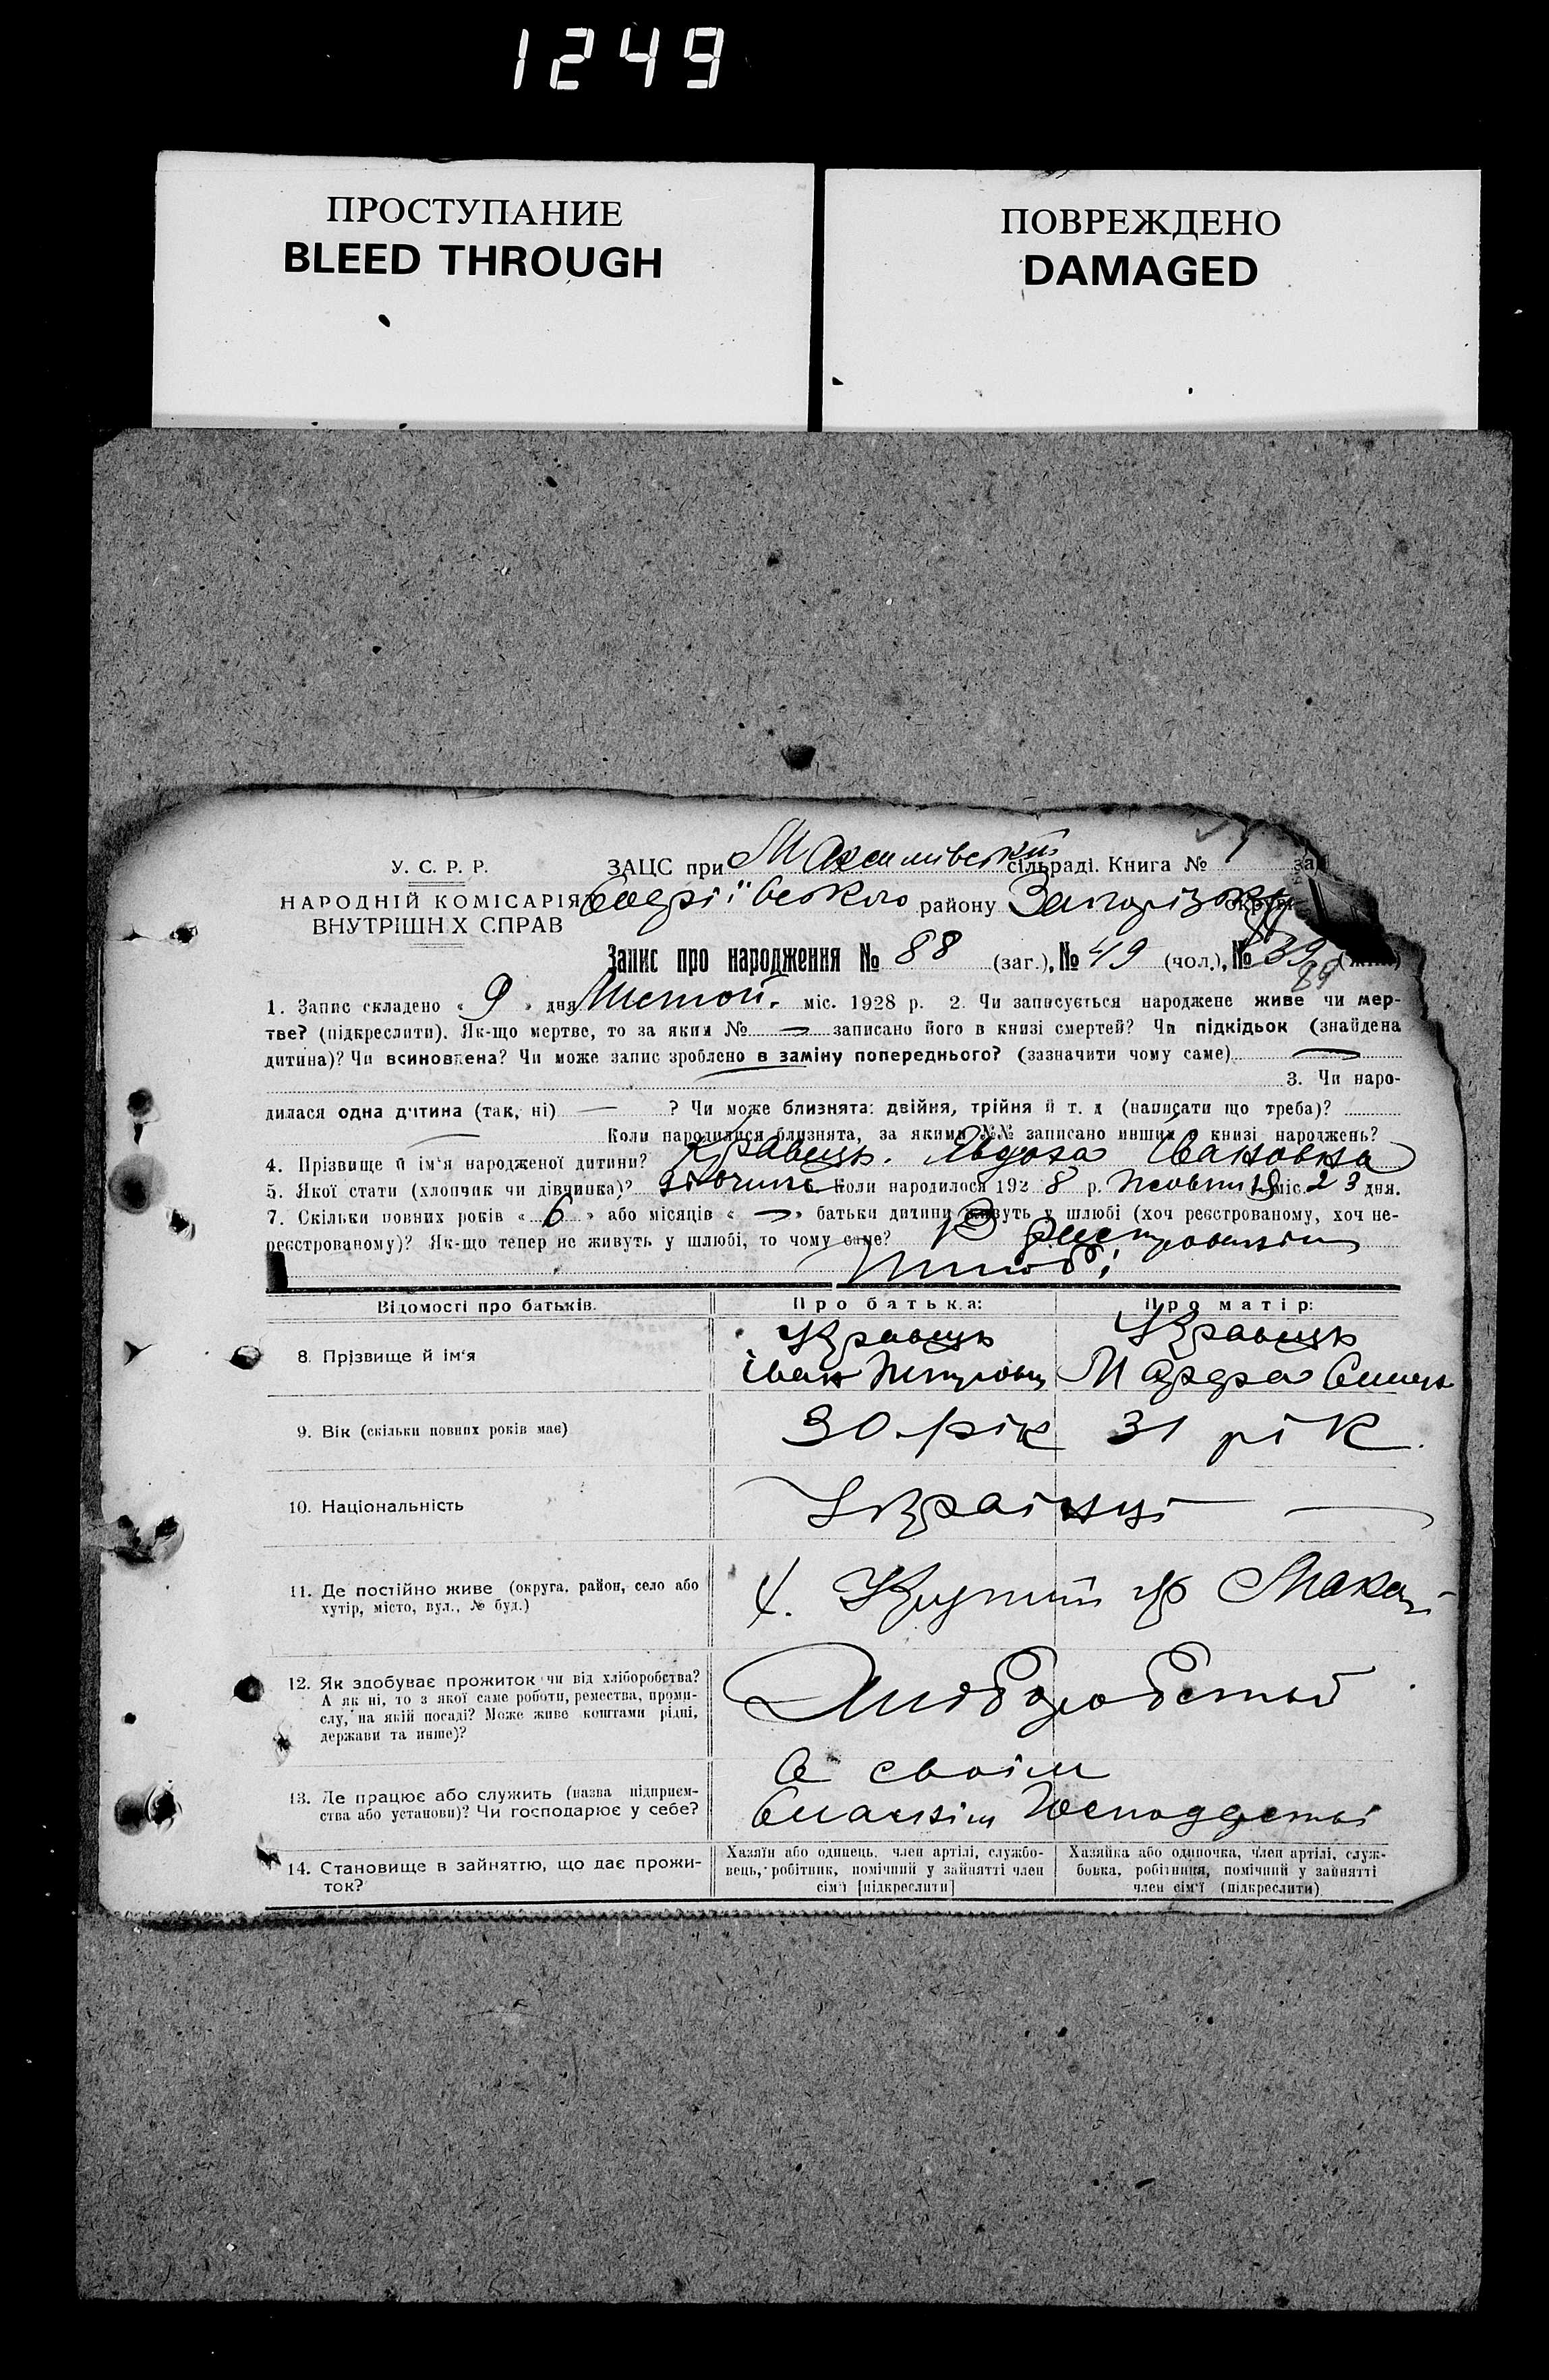 1249
ПРОСТУПАНИЕ
BLEED THROUGH
ПОВРЕЖДЕНО
DAMAGED
У. С. Р. Р.
НАРОДНІЙ КОМІСАРІЯТ
ВНУТРІШН Х СПРАВ
ЗАЦС при сільраді. Книга № 1 за
району округи
Запис про народження № 88 (заг.), № 49 (чол.), № 39 (жін.)
89
1. Запис складено « 9 » дня міс. 1928 р. 2. Чи записується народжене живе чи мер-
тве? (підкреслити). Як-що мертве, то за яким № — записано його в книзі смертей? Чи підкідьок (знайдена
дитина)? Чи всиновлена? Чи може запис зроблено в заміну попереднього? (зазначити чому саме) —
3. Чи наро-
дилася одна дитина (так, ні) — ? Чи може близнята: двійня, трійня й т. д (написати що треба)?
— Коли народилися близнята, за якими №№ записано инших в книзі народжень?
4. Прізвище й ім'я народженої дитини? Кравець. Явдоха Івановна
5. Якої стати (хлопчик чи дівчинка)? Дівчина Коли народилося 192 8 р. міс. 23 дня.
7. Скільки повних років « 6 » або місяців « — » батьки дитини живуть у шлюбі (хоч реєстрованому, хоч не-
реєстрованому)? Як-що тепер не живуть у шлюбі, то чому саме? В реєстрованім
шлюбі
Відомості про батьків. Про батька: Про матір:
8. Прізвище й ім'я
Кравець Кравець
Іван Петрович
9. Вік (скільки повних років має) 30 рік 31 рік
10. Національність Українці —
11. Де постійно живе (округа, район, село або
хутір, місто, вул., № буд.)
12. Як здобуває прожиток чи від хліборобства?
А як ні, то з якої саме роботи, ремества, проми-
слу, на якій посаді? Може живе коштами рідні,
держави та инше)?
Хліборобством
13. Де працює або служить (назва підприем-
ства або установи)? Чи господарює у себе?
В своїм
власнім господарстві
14. Становище в зайняттю, що дає прожи-
ток?
Хазяїн або одинець, член артілі, службо-
вець, робітник, помічний у зайнятті член
сім'ї [підкреслити]
Хазяйка або одиночка, член артілі, служ-
бовка, робітниця, помічний у зайнятті
член сім'ї (підкреслити)